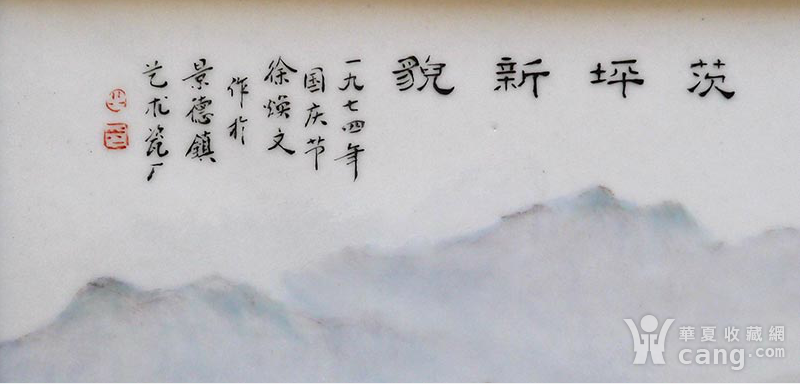 茨坪新貌
一九七四年
国庆节
徐焕文
作於
景德鎮
艺术瓷厂
華夏收藏網
cang.com